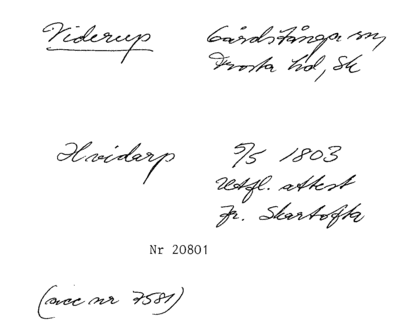 Viderup Gårdstånga sn,
Frosta hd, Sk
Hvidarp 5/5 1803
Utfl. attest
fr. Skartofta
Nr 20801
(acc nr 7581)